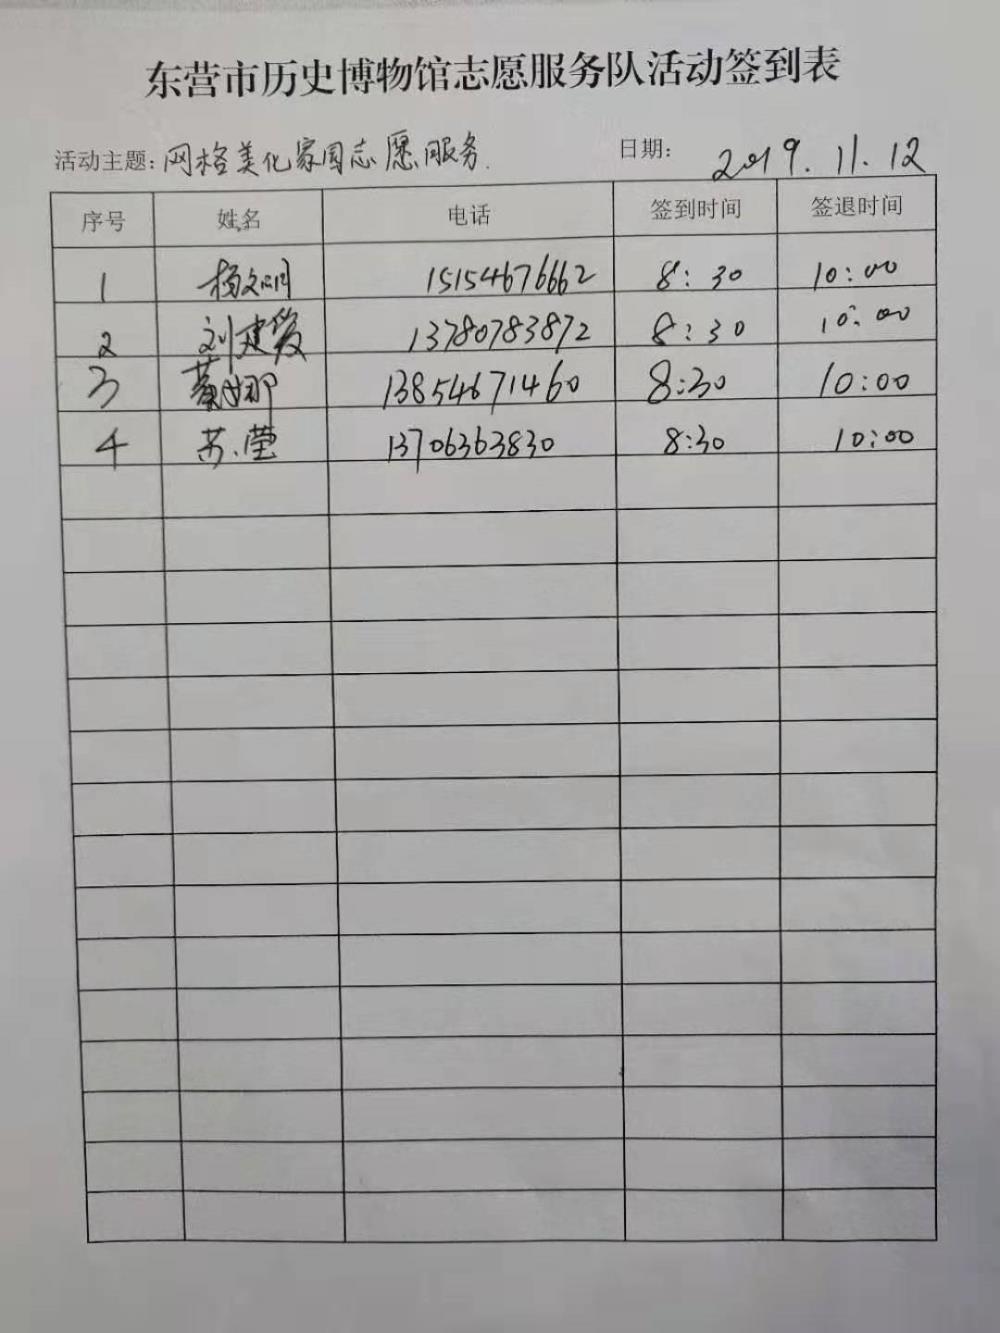 东营市历史博物馆志愿服务队活动签到表
活动主题: 网格美化家园志愿服务. 日期: 2019.11.12
序号 姓名 电话 签到时间 签退时间
1 15154676662 8:30 10:00
2 刘建爱 13780783872 8:30 10:00
3 13854671460 8:30 10:00
4 苏莹 13706363830 8:30 10:00